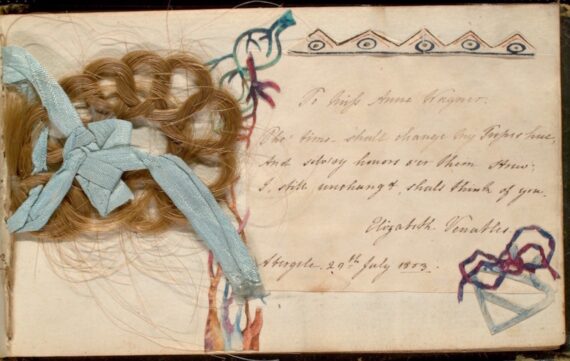 To Miss Anne Wagner.
Tho' time shall change my Tresses hue,
And silv'ry honors o'er them strew;
I, still unchang'd, shall think of you.
Elizabeth Venables.
Abergele. July 1803.